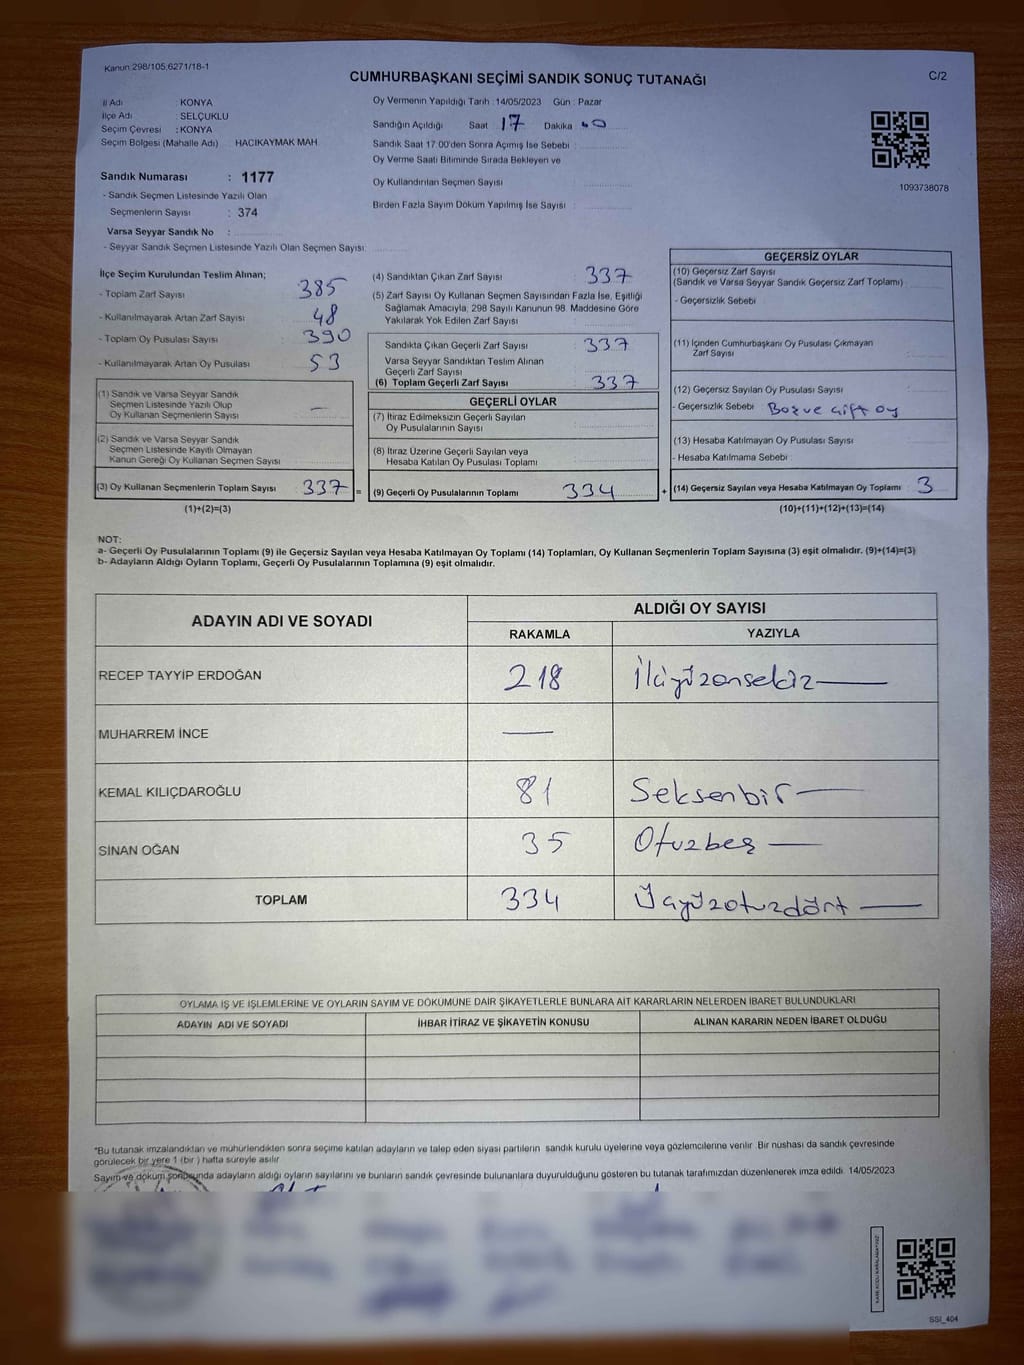 Kanun:298/105;6271/18-1
CUMHURBAŞKANI SEÇİMİ SANDIK SONUÇ TUTANAĞI
C/2
İl Adı : KONYA
İlçe Adı : SELÇUKLU
Seçim Çevresi : KONYA
Seçim Bölgesi (Mahalle Adı) HACIKAYMAK MAH.
Sandık Numarası : 1177
- Sandık Seçmen Listesinde Yazılı Olan
Seçmenlerin Sayısı : 374
Varsa Seyyar Sandık No :
- Seyyar Sandık Seçmen Listesinde Yazılı Olan Seçmen Sayısı:
Oy Vermenin Yapıldığı Tarih : 14/05/2023 Gün : Pazar
Sandığın Açıldığı Saat 17 Dakika 40
Sandık Saat 17:00'den Sonra Açılmış İse Sebebi :
Oy Verme Saati Bitiminde Sırada Bekleyen ve
Oy Kullandırılan Seçmen Sayısı :
Birden Fazla Sayım Döküm Yapılmış İse Sayısı :
1093738078
İlçe Seçim Kurulundan Teslim Alınan;
- Toplam Zarf Sayısı : 385
- Kullanılmayarak Artan Zarf Sayısı : 48
- Toplam Oy Pusulası Sayısı : 390
- Kullanılmayarak Artan Oy Pusulası : 53
(1) Sandık ve Varsa Seyyar Sandık
Seçmen Listesinde Yazılı Olup
Oy Kullanan Seçmenlerin Sayısı : —
(2) Sandık ve Varsa Seyyar Sandık
Seçmen Listesinde Kayıtlı Olmayan
Kanun Gereği Oy Kullanan Seçmen Sayısı :
(3) Oy Kullanan Seçmenlerin Toplam Sayısı : 337 =
(1)+(2)=(3)
(4) Sandıktan Çıkan Zarf Sayısı : 337
(5) Zarf Sayısı Oy Kullanan Seçmen Sayısından Fazla İse, Eşitliği
Sağlamak Amacıyla, 298 Sayılı Kanunun 98. Maddesine Göre
Yakılarak Yok Edilen Zarf Sayısı :
Sandıkta Çıkan Geçerli Zarf Sayısı : 337
Varsa Seyyar Sandıktan Teslim Alınan
Geçerli Zarf Sayısı :
(6) Toplam Geçerli Zarf Sayısı : 337
GEÇERLİ OYLAR
(7) İtiraz Edilmeksizin Geçerli Sayılan
Oy Pusulalarının Sayısı :
(8) İtiraz Üzerine Geçerli Sayılan veya
Hesaba Katılan Oy Pusulası Toplamı :
(9) Geçerli Oy Pusulalarının Toplamı : 334 +
GEÇERSİZ OYLAR
(10) Geçersiz Zarf Sayısı
(Sandık ve Varsa Seyyar Sandık Geçersiz Zarf Toplamı) :
- Geçersizlik Sebebi :
(11) İçinden Cumhurbaşkanı Oy Pusulası Çıkmayan
Zarf Sayısı :
(12) Geçersiz Sayılan Oy Pusulası Sayısı :
- Geçersizlik Sebebi : Boş ve çift oy
(13) Hesaba Katılmayan Oy Pusulası Sayısı :
- Hesaba Katılmama Sebebi :
(14) Geçersiz Sayılan veya Hesaba Katılmayan Oy Toplamı : 3
(10)+(11)+(12)+(13)=(14)
NOT:
a- Geçerli Oy Pusulalarının Toplamı (9) ile Geçersiz Sayılan veya Hesaba Katılmayan Oy Toplamı (14) Toplamları, Oy Kullanan Seçmenlerin Toplam Sayısına (3) eşit olmalıdır. (9)+(14)=(3)
b- Adayların Aldığı Oyların Toplamı, Geçerli Oy Pusulalarının Toplamına (9) eşit olmalıdır.
ADAYIN ADI VE SOYADI
ALDIĞI OY SAYISI
RAKAMLA YAZIYLA
RECEP TAYYİP ERDOĞAN 218 İkiyüzonsekiz —
MUHARREM İNCE —
KEMAL KILIÇDAROĞLU 81 Seksenbir —
SİNAN OĞAN 35 Otuzbeş —
TOPLAM 334 Üçyüzotuzdört —
OYLAMA İŞ VE İŞLEMLERİNE VE OYLARIN SAYIM VE DÖKÜMÜNE DAİR ŞİKAYETLERLE BUNLARA AİT KARARLARIN NELERDEN İBARET BULUNDUKLARI
ADAYIN ADI VE SOYADI İHBAR İTİRAZ VE ŞİKAYETİN KONUSU ALINAN KARARIN NEDEN İBARET OLDUĞU
*Bu tutanak imzalandıktan ve mühürlendikten sonra seçime katılan adayların ve talep eden siyasi partilerin sandık kurulu üyelerine veya gözlemcilerine verilir. Bir nushası da sandık çevresinde
görülecek bir yere 1 (bir) hafta süreyle asılır
Sayım ve döküm sonucunda adayların aldığı oyların sayılarını ve bunların sandık çevresinde bulunanlara duyurulduğunu gösteren bu tutanak tarafımızdan düzenlenerek imza edildi. 14/05/2023
SSI_404